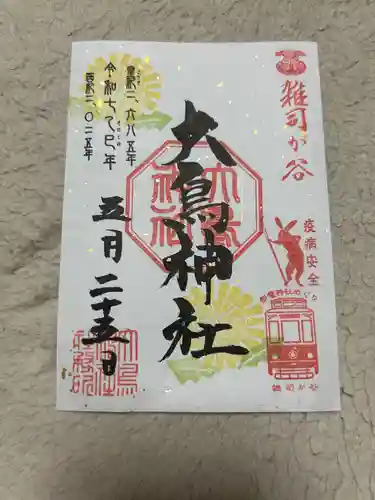 雑司が谷
疫病安全
都電神社めぐり
雑司が谷
大鳥神社
皇紀二、六八五年
令和七乙巳年
西紀二、〇二五年
五月二十五日